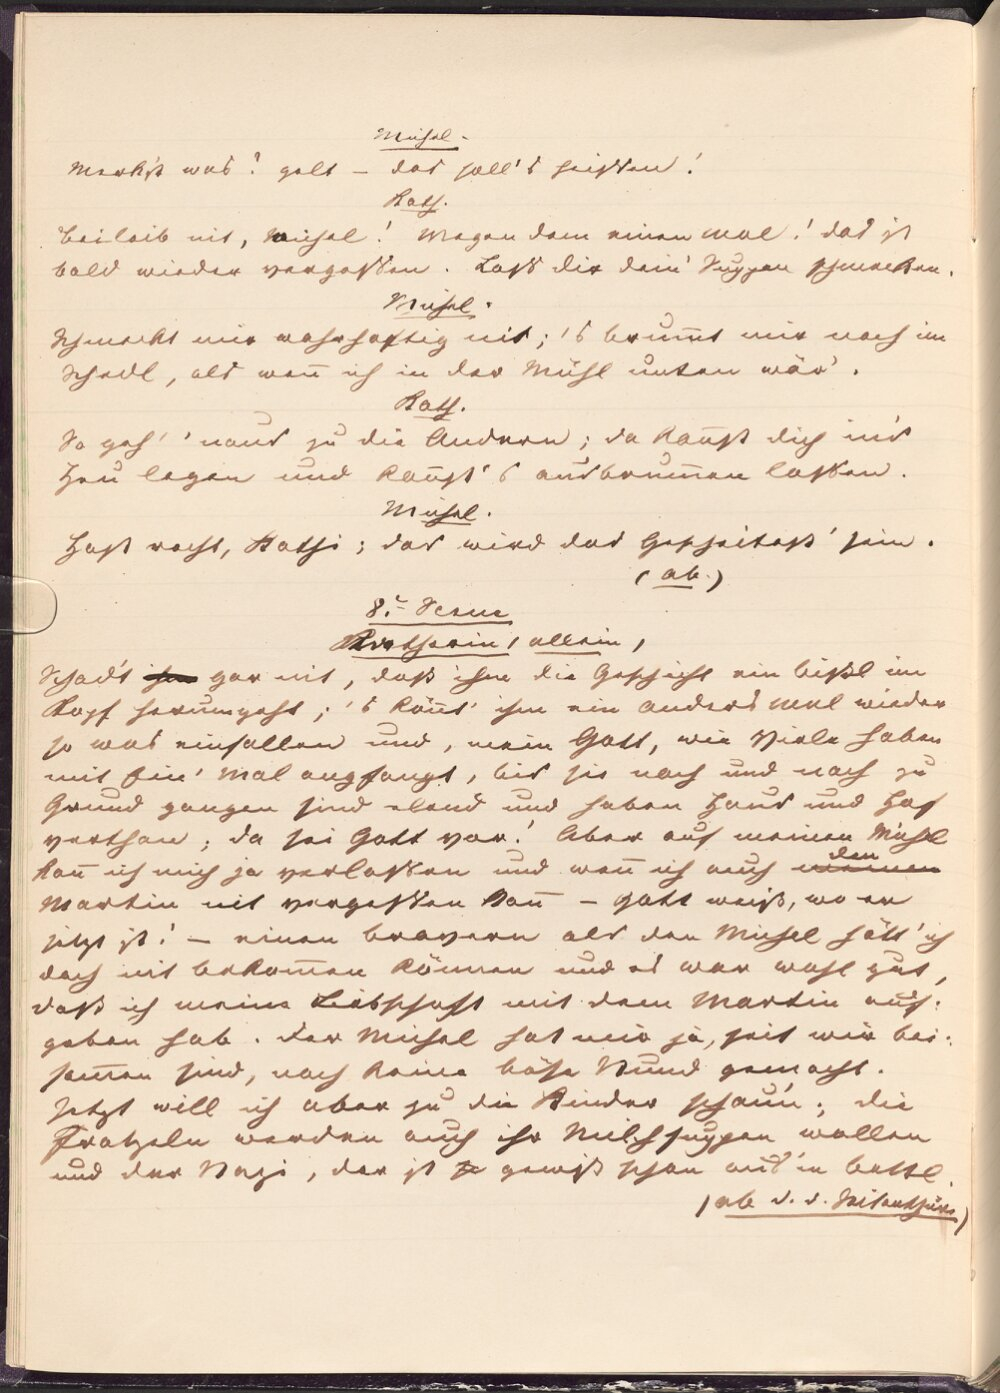 Michel.
Merkst was? gelt – das soll's heissen!
Kath.
Beileib nit, Michel! Wegen dem einen Mal! das ist
bald wieder vergessen. Lass dir dein' Suppen schmecken.
Michel.
Schmeckt mir wahrhaftig nit; 's brum̅t mir noch im
Schedl, als wen̅ ich in der Mühl unten wär'.
Kath.
So geh' 'naus zu die Andern; da kan̅st dich in's
Heu legen und kan̅st's ausbrum̅en lassen.
Michel.
Hast recht, Kathi; das wird das Gescheitest' sein.
(ab.)
8te Scene
Katharin, allein,
Schad't ihm gar nit, daß ihm die Geschicht ein bißl im
Kopf herumgeht; 's kön̅t' ihm ein anders Mal wieder
so was einfallen und, mein Gott, wie Viele haben
mit ein' Mal angfangt, bis sie nach und nach zu
Grund gangen sind elend und haben Haus und Hof
verthan; da sei Gott vor! Aber auf meinen Michel
kan̅ ich mich ja verlassen und wen̅ ich auch meinen den
Martin nit vergessen kan̅ – Gott weiß, wo er
jetzt ist! – einen bravern als den Michel hätt' ich
doch nit bekom̅en können und es war wohl gut,
daß ich meine Liebschaft mit dem Martin auf-
geben hab. Der Michel hat mir ja, seit wir bei-
sam̅en sind, noch keine böse Stund gemacht.
Jetzt will ich aber zu die Kinder schaun; die
Fratzeln werden auch ihr Milchsuppen wollen
und der Nazi, der ist gewiß schon aus'm Bettl.
(ab d. d. Seitenthüre)